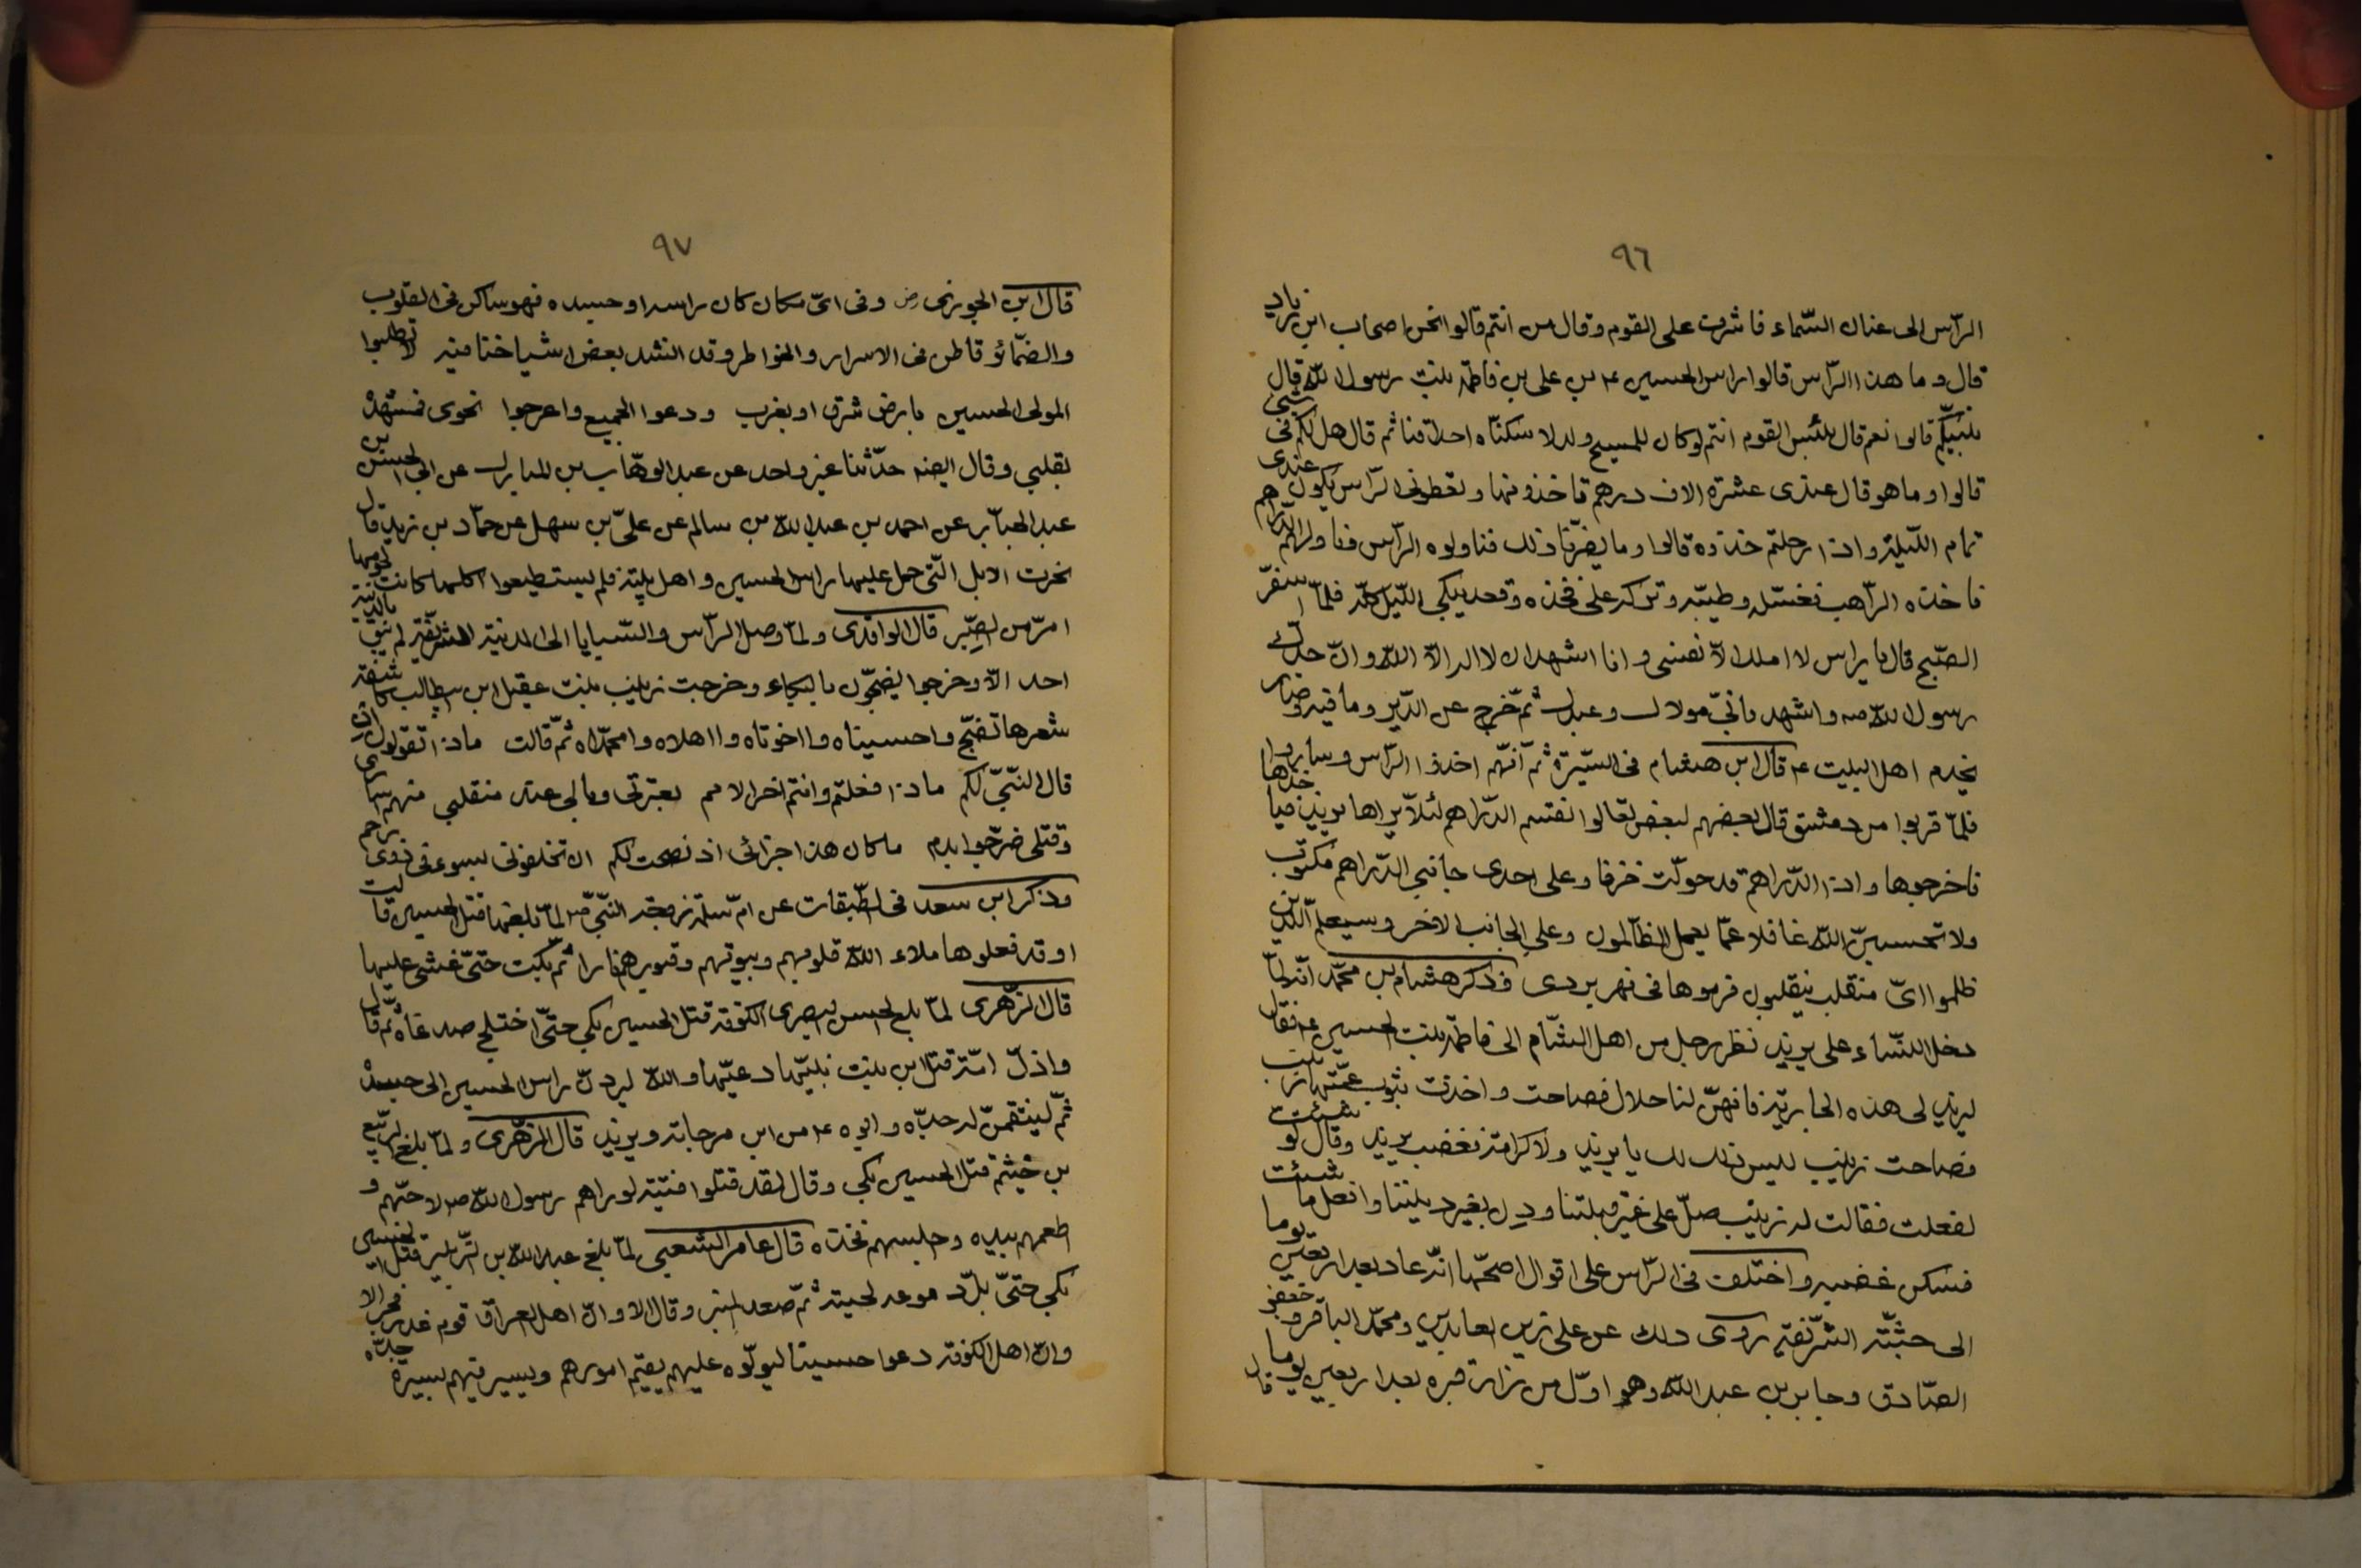 ٩٦
الرّاس الى عنان السّماء فاشرف على القوم وقال من انتم قالوا نحن اصحاب ابن زياد
قال وما هذا الرّاس قالوا راس الحسين ع بن على بن فاطمة بنت رسول الله قال
نبيّكم قالوا نعم قال بئس القوم انتم لو كان للمسيح ولد لاسكنّاه احداقنا ثم قال هل لكم فى شئ
قالوا وما هو قال عندى عشرة الاف درهم تاخذونها وتعطونى الرّاس يكون عندى
تمام اللّيلة واذا رحلتم خذوه قالوا وما يضرّنا ذلك فناولوه الرّاس فناولهم الدّراهم
فاخذه الرّاهب فغسّله وطيّبه وتركه على فخذه وقعد يبكى اللّيل كلّه فلمّا اسفر
الصّبح قال يا راس لا املك الّا نفسى وانا اشهد ان لا اله الّا الله وانّ جدّك
رسول الله صه واشهد بانّى مولاك وعبدك ثمّ خرج عن الدّير وما فيه وصار
يخدم اهل البيت ع قال ابن هشام فى السّيرة ثمّ انّهم اخذوا الرّاس وساروا
فلمّا قربوا من دمشق قال بعضهم لبعض تعالوا نقتسم الدّراهم لئلّا يراها يزيد فياخذها
فاخرجوها واذا الدّراهم قد حولّت خزفا وعلى احدى جانبى الدّراهم مكتوب
ولا تحسبنّ الله غافلا عمّا يعمل الظّالمون وعلى الجانب الاخر وسيعلم الّذين
ظلموا اىّ منقلب ينقلبون فرموها فى نهر بردى وذكر هشام بن محمّد انّه لمّا
دخل النّساء على يزيد نظر رجل من اهل الشّام الى فاطمة بنت الحسين ع فقال
ليزيد لى هذه الجارية فانهنّ لنا حلال فصاحت واخذت بثوب عمّتها زينب
فصاحت زينب ليس ذلك لك يا يزيد ولا كرامة فغضب يزيد وقال لو شئت
لفعلت فقالت له زينب صلّ على غير قبلتنا ودِن بغير ديننا وافعل ما شئت
فسكن غضبه واختلف فى الرّاس على اقوال اصحّها انّه عاد بعد اربعين يوما
الى جثّته الشّريفة روى ذلك عن على زين العابدين ومحمّد الباقر وجعفر
الصّادق وجابر بن عبد الله وهو اوّل من زار قبره بعد اربعين يوما قال
٩٧
قال ابن الجوزى رض وفى اىّ مكان كان راسه او جسده فهو ساكن فى القلوب
والضّمائر قاطن فى الاسرار والخواطر وقد انشد بعض اشياخنا فيه لا تطلبوا
المولى الحسين بارض شرق او بغرب ودعوا الجميع واعرجوا نحوى فمشهده
بقلبى وقال ايضه حدّثنا غير واحد عن عبد الوهّاب بن المبارك عن ابى الحسين بن
عبد الجبّار عن احمد بن عبد الله بن سالم عن علىّ بن سهل عن حمّاد بن زيد قال
نحرت الابل الّتى حمل عليها راس الحسين واهل بيته فلم يستطيعوا اكلها كانت لحومها
امرّ من الصّبر قال الواقدى ولمّا وصل الرّاس والسّبايا الى المدنية الشريفة لم يبق بالمدينة
احد الّا وخرجوا يضجّون بالبكاء وخرجت زينب بنت عقيل ابن ابيطالب كاشفة
شعرها تضجّ واحسيناه وااخوتاه وااهلاه وامحمّداه ثمّ قالت ماذا تقولون ان
قال النّبىّ لكم ماذا فعلتم وانتم اخر الامم بعترتى وبالى عند منقلبى منهم اسارى
وقتلى ضرّجوا بدم ما كان هذا جزائى اذ نصحت لكم ان تخلفونى بسوء فى ذوى رحم
وذكر ابن سعد فى الطّبقات عن امّ سلمة زوجة النّبىّ ص لمّا بلغها قتل الحسين قالت
اوقد فعلوها ملاء الله قلوبهم وبيوتهم وقبورهم نارا ثمّ بكت حتّى غشى عليها
قال الزّهرى لمّا بلغ الحسن البصرى الكوفة قتل الحسين بكى حتّى اختلج صدغاه ثمّ قال
واذلّ امّة قتل ابن بنت نبيّها دعيّها والله ليردنّ راس الحسين الى جسده
ثمّ لينتقمنّ له جدّه وابوه ع من ابن مرجانة ويزيد قال الزهرى ولمّا بلغ الرّبيع
بن خيثم قتل الحسين بكى وقال لقد قتلوا فتية لو راهم رسول الله ص لاحبّهم و
اطعمهم بيده وجلسهم فخذه قال عامر الشعبى لمّا بلغ عبد الله بن الزّبير قتل الحسين
بكى حتّى بلّ دموعه لحيته ثمّ صعد المنبر وقال الا وانّ اهل العراق قوم غدر فجر الا
وانّ اهل الكوفة دعوا حسينا ليولّوه عليهم يقيم امورهم ويسير فيهم بسيرة جدّه